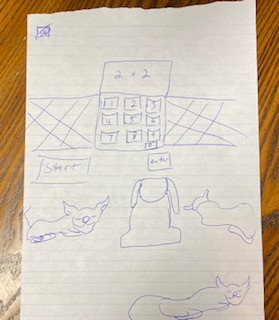 2 x 2
1 2 3
4 5 6
7 8 9
0
Start
enter